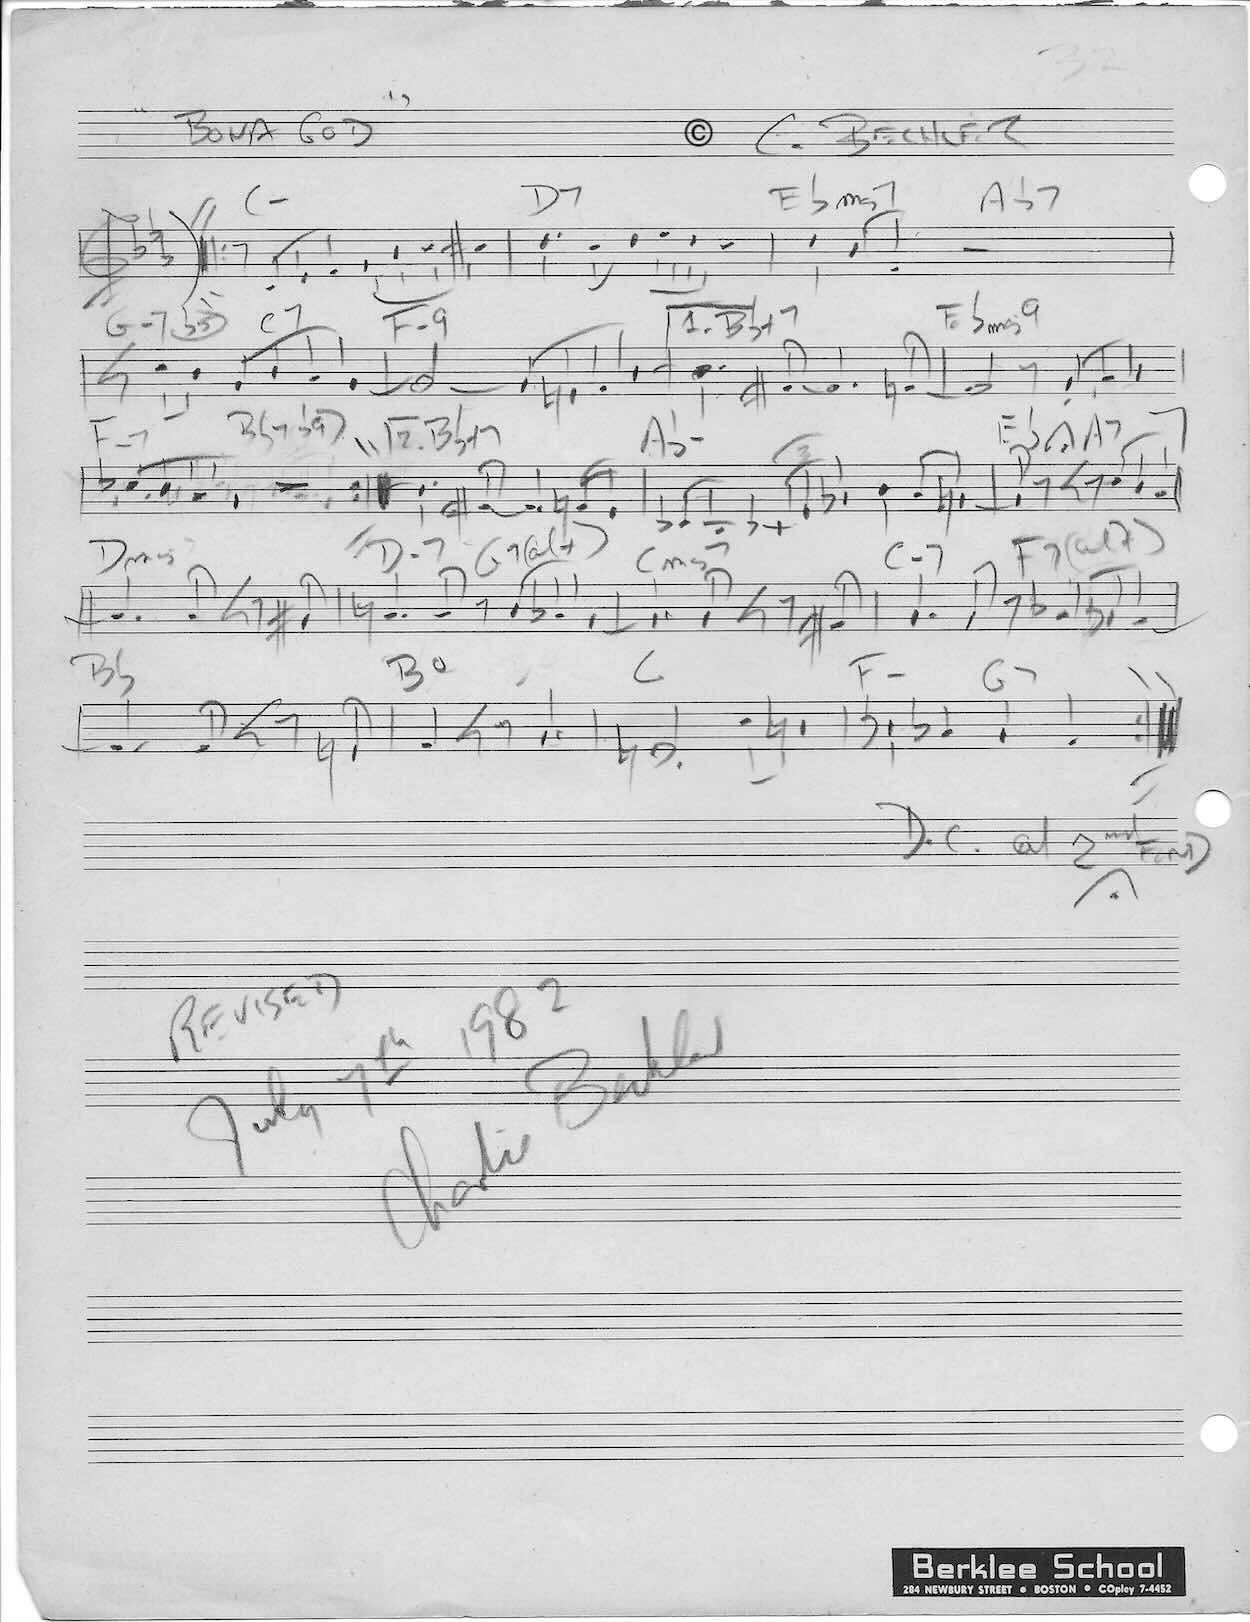 32
"BONA GOD" © C. BECHLER
C- D7 Ebmaj7 Ab7
G-7b5 C7 F-9 1. Bb+7 Ebmaj9
F-7 Bb7b9) 2. Bb+7 Ab- Eb A7
3
Dmaj7 D-7 G7(alt) Cmaj7 C-7 F7(alt)
Bb Bo C F- G7
D.C. al 2nd END
REVISED
July 7th 1982
Charlie Bechler
Berklee School
284 NEWBURY STREET • BOSTON • COpley 7-4452